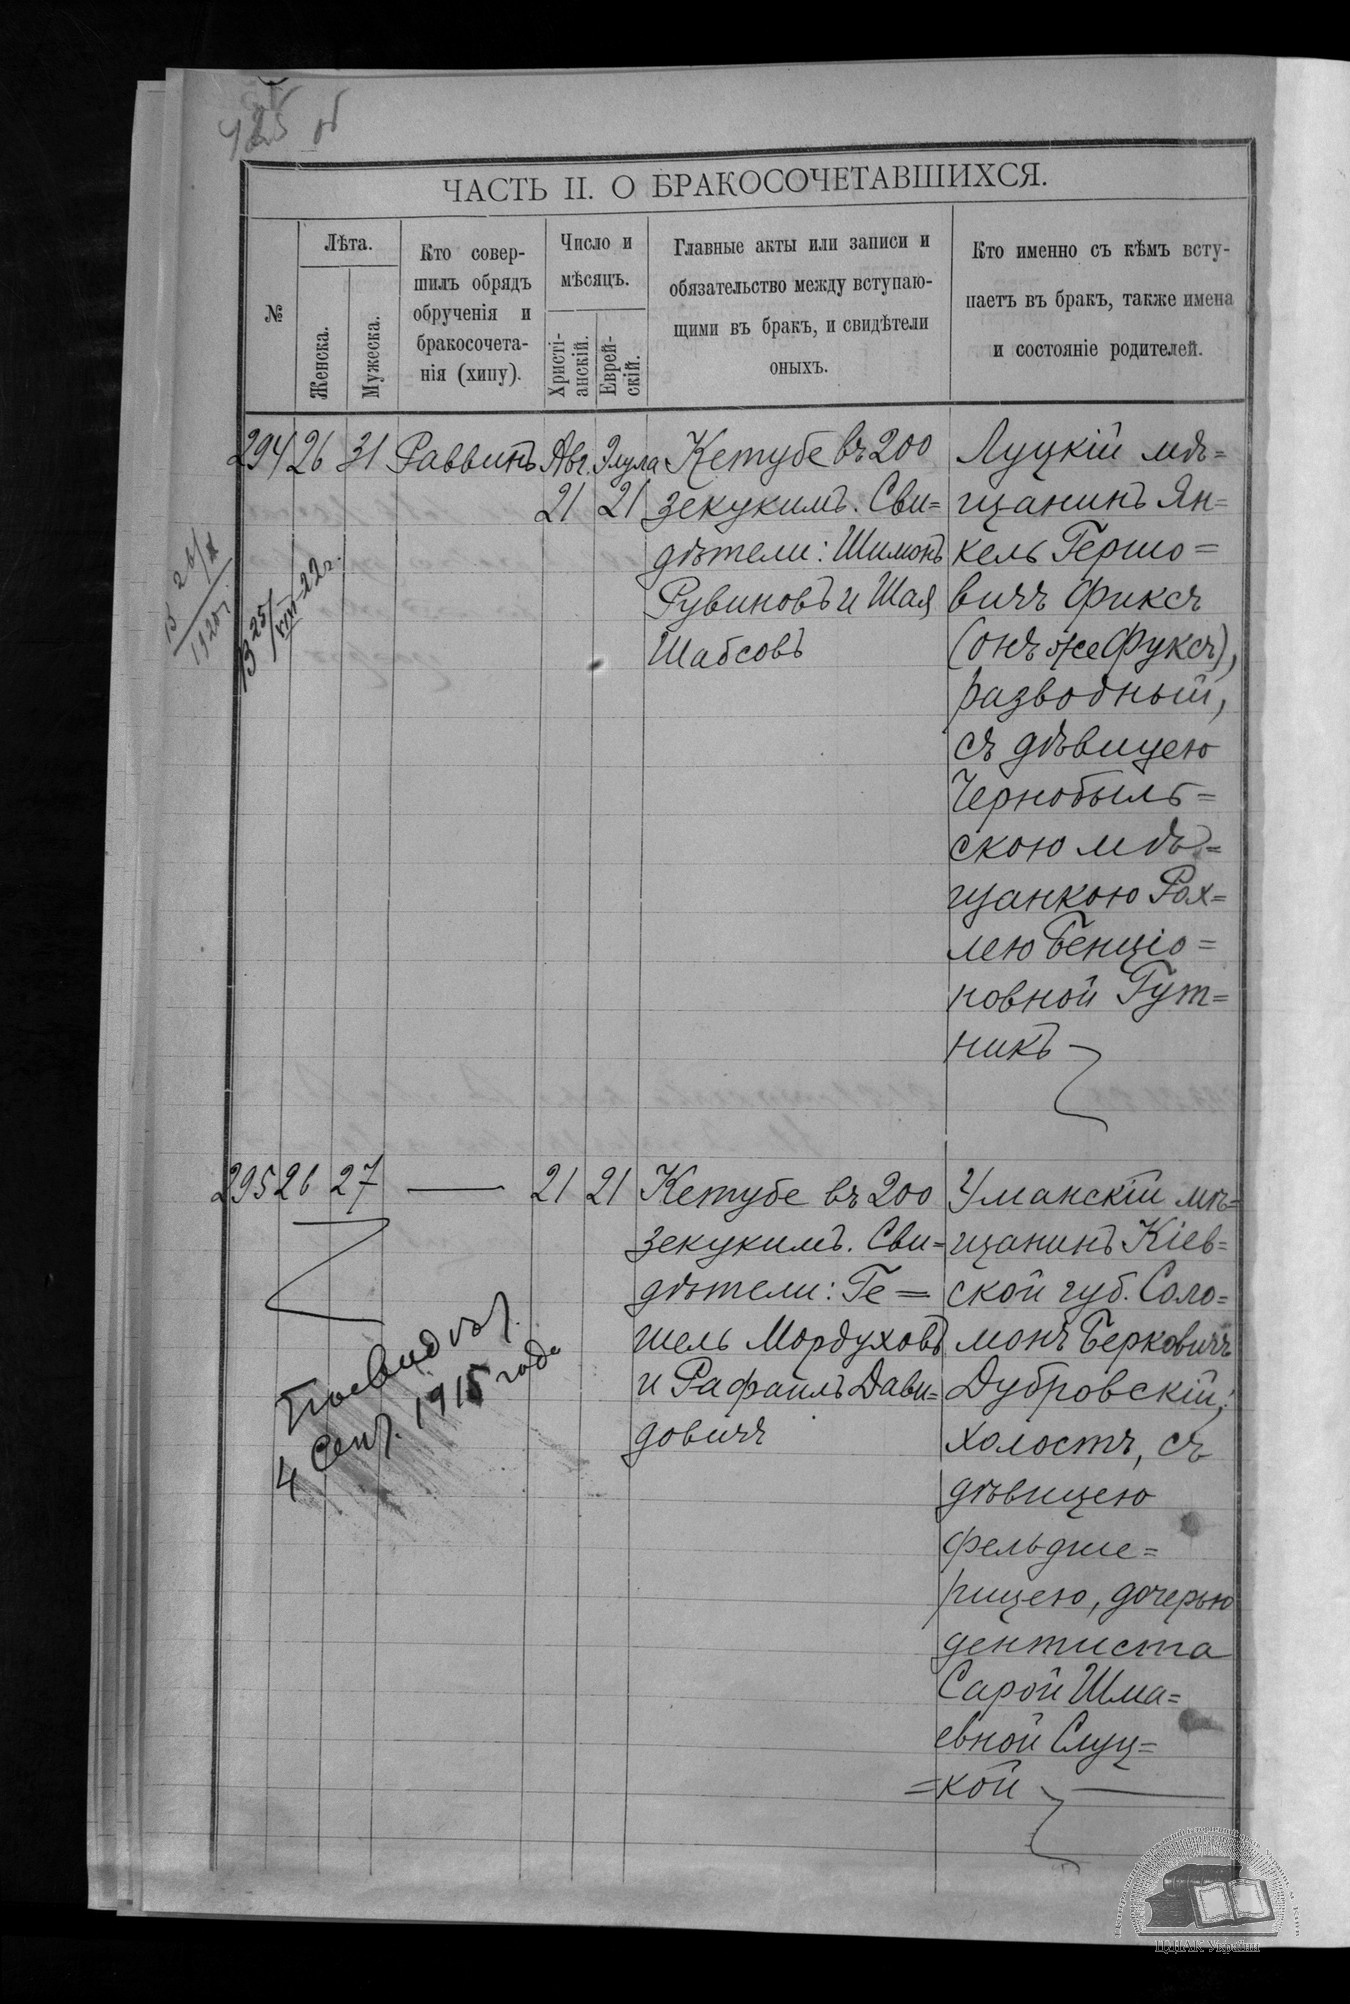 425 об
ЧАСТЬ II. О БРАКОСОЧЕТАВШИХСЯ.
№
Лѣта.
Женска.
Мужеска.
Кто совер-
шилъ обрядъ
обрученія и
бракосочета-
нія (хипу).
Число и
мѣсяцъ.
Христі-
анскій.
Еврей-
скій.
Главные акты или записи и
обязательство между вступаю-
щими въ бракъ, и свидѣтели
оныхъ.
Кто именно съ кѣмъ всту-
паетъ въ бракъ, также имена
и состояніе родителей.
294 26 31 Раввинъ Авг. Элула
21 21
Кетубе въ 200
зекукимъ. Сви=
дѣтели: Шимонъ
Рувиновъ и Шая
Шабсовъ
Луцкій мѣ=
щанинъ Ян=
кель Гершо=
вичъ Фиксъ
(онъ же Фуксъ),
разводный,
съ дѣвицею
Чернобыль=
скою мѣ=
щанкою Рох=
лею Бенціо=
новной Гут=
никъ
В 26/X
1920г.
В 25/VIII-22г.
295 26 27 — 21 21
Кетубе въ 200
зекукимъ. Сви=
дѣтели: Ге=
шель Мордуховъ
и Рафаилъ Дави=
довичъ
Уманскій мѣ=
щанинъ Кіев=
ской губ. Соло=
монъ Берковичъ
Дубровскій,
холостъ, съ
дѣвицею
фельдше=
рицею, дочерью
дентиста
Сарой Шма=
евной Слуц=
=кой
4 Сент. 1915 года
ЦДІАК України